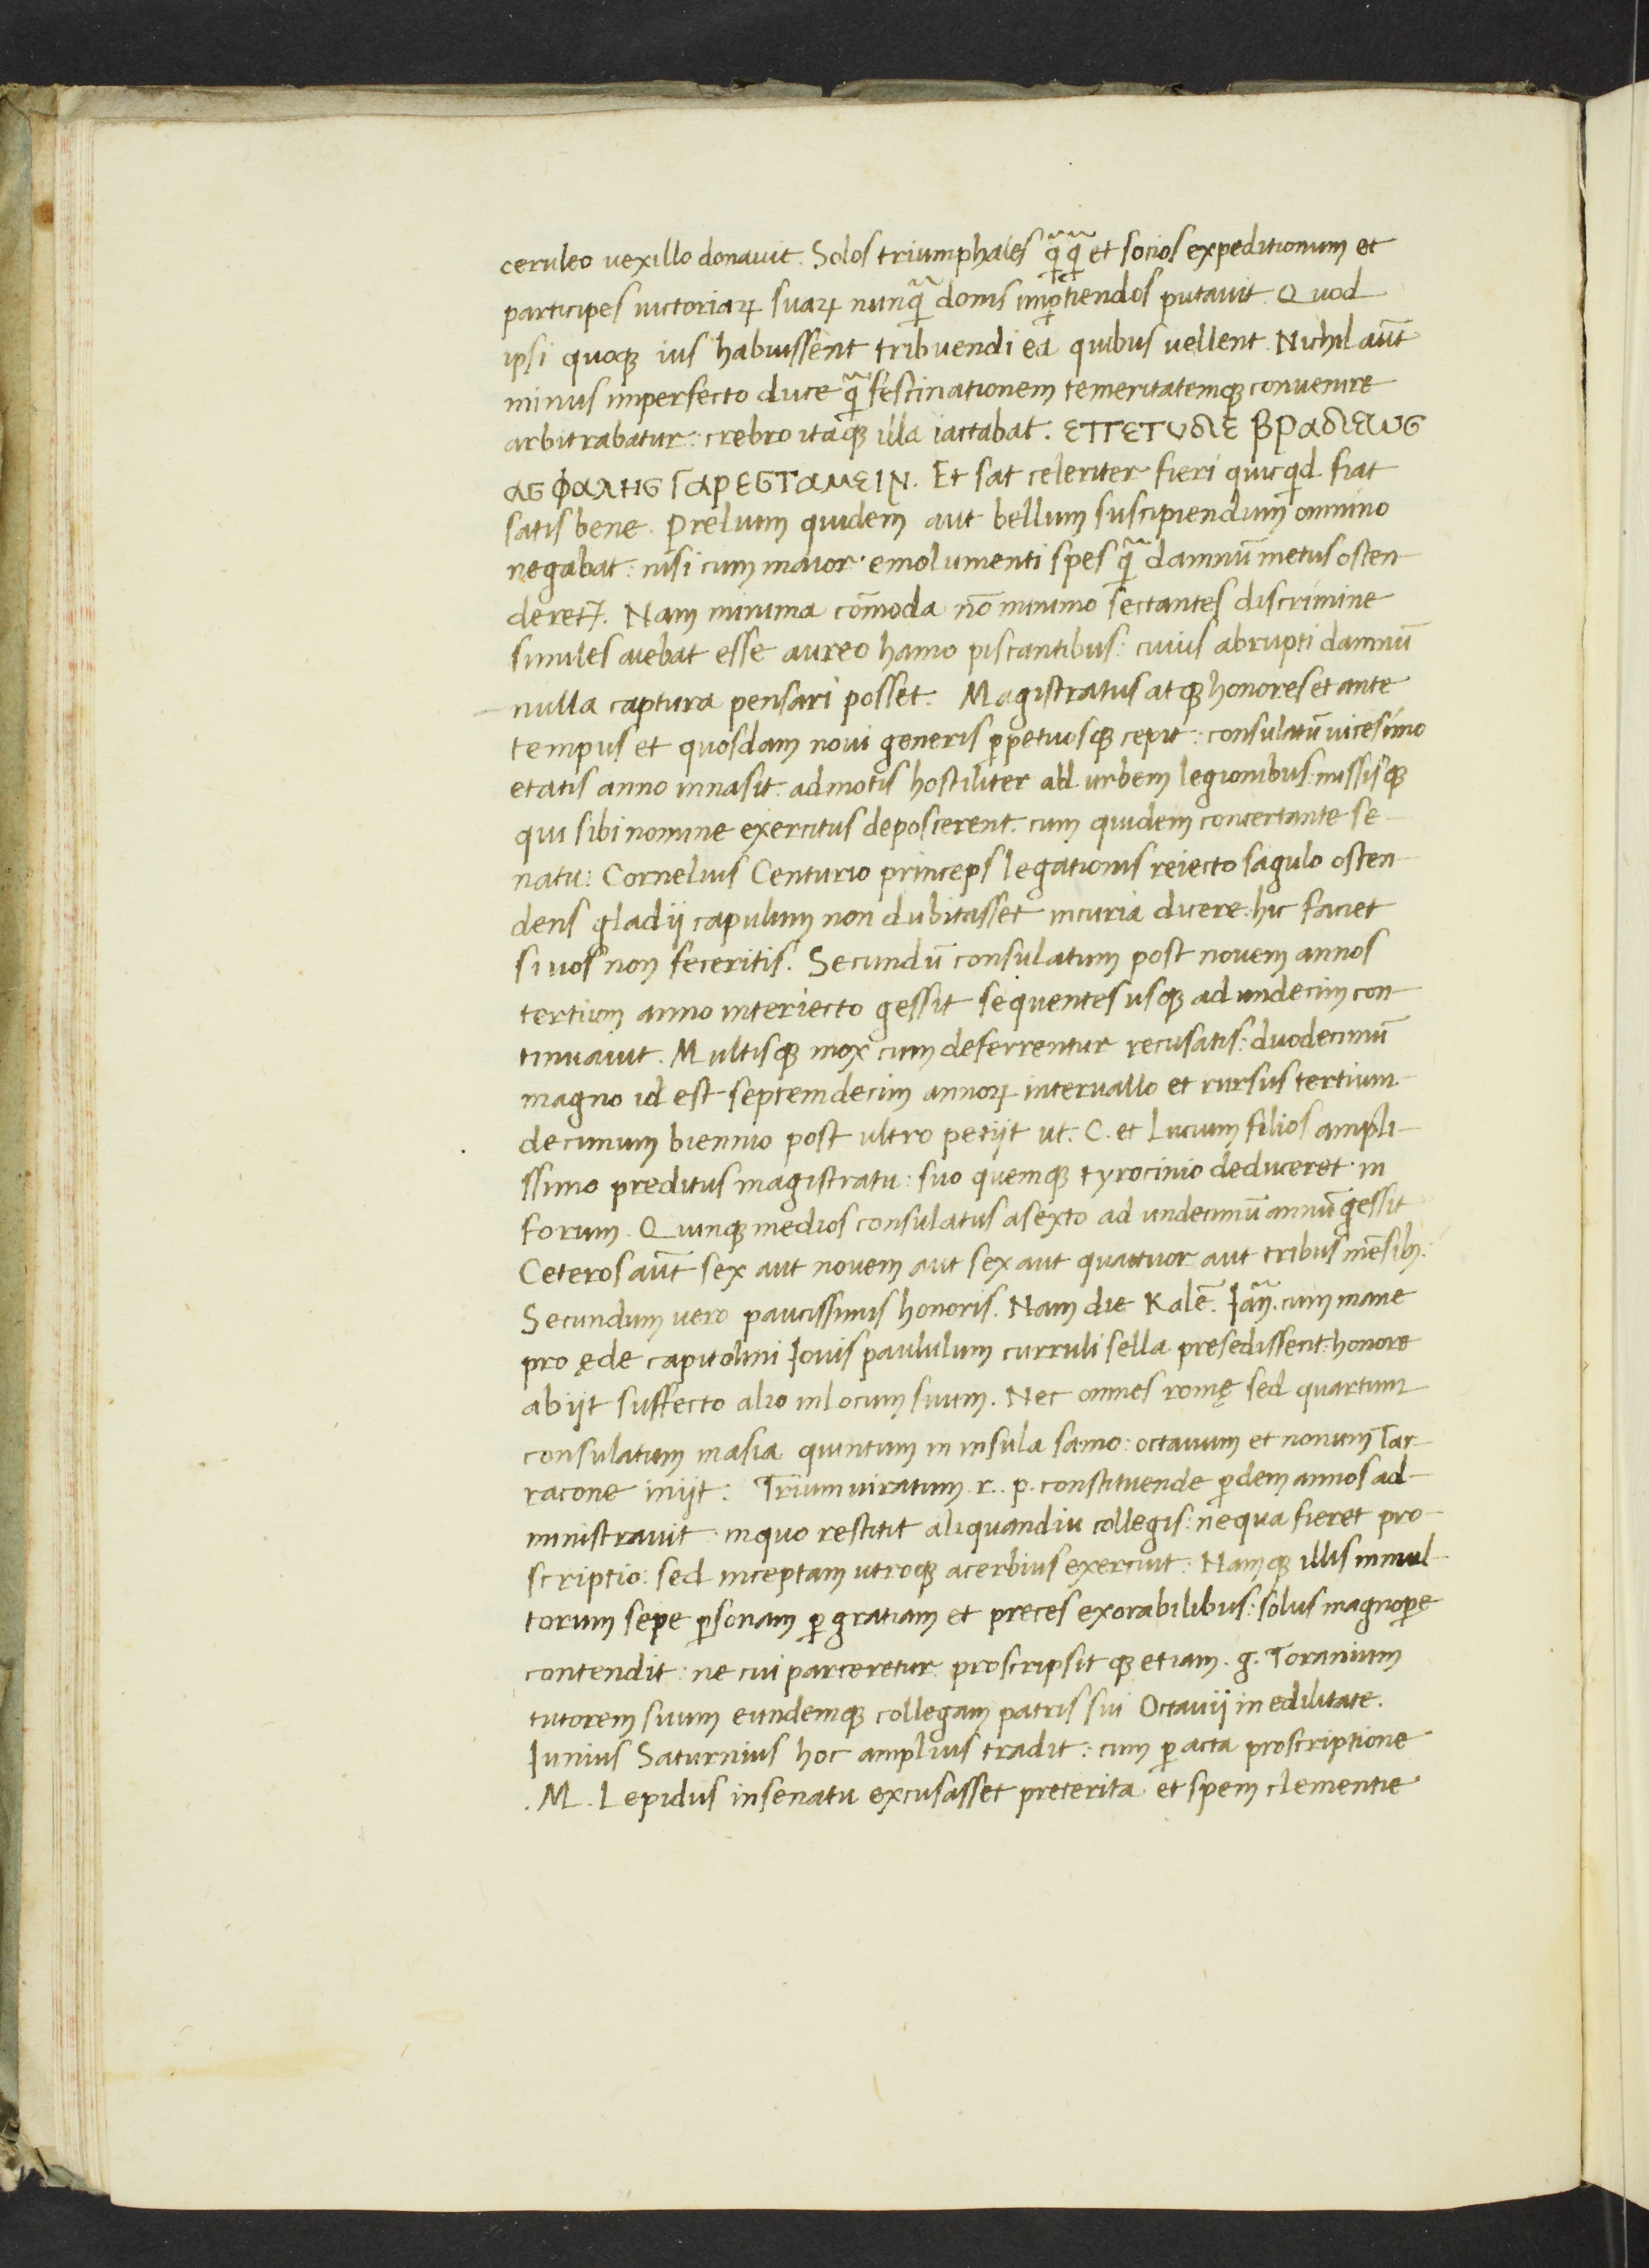 ceruleo uexillo donauit. Solos triumphales q̃q̃ et socios expeditionum et
participes uictoriaꝝ suaꝝ nunq̃ donis imꝑtiendos putauit. Quod
ipsi quoqꝫ ius habuissent tribuendi ea quibus uellent. Nichil aut̄
minus imperfecto duce q̃ festinationem temeritatemqꝫ conuenire
arbitrabatur: crebro itaqꝫ illa iactabat. ϵΠϵΤνδιϵ βΡαδιϵως
ας φαληις ΓαΡϵςΤαμϵιΝ. Et sat celeriter fieri quicqd fiat
satis bene. Prelium quidem aut bellum suscipiendum omnino
negabat: nisi cum maior emolumenti spes q̃ damnū metus osten-
deret᷑. Nam minima cōmoda nō minimo sectantes discrimine
similes aiebat esse aureo hamo piscantibus: cuius abrupti damnū
nulla captura pensari posset. Magistratus atqꝫ honores et ante
tempus et quosdam noui generis ꝑpetuosqꝫ cepit: consulatū uicesimo
etatis anno inuasit: admotis hostiliter ad urbem legionibus: missisqꝫ
qui sibi nomine exercitus deposcerent. cum quidem concertante se-
natu: Cornelius Centurio princeps legationis reiecto sagulo osten-
dens gladij capulum non dubitasset incuria dicere: hic faciet
si uos non feceritis. Secundū consulatum post nouem annos
tertium anno interiecto gessit sequentes usqꝫ ad undecim con-
tinuauit. Multisqꝫ mox cum deferrentur recusatis: duodecimū
magno id est septemdecim annoꝝ interuallo et rursus tertium
decimum biennio post ultro petijt ut. C. et Lucium filios ampli-
ssimo preditus magistratu: suo quemqꝫ tyrocinio deduceret in
forum. Quinqꝫ medios consulatus asexto ad undecimū annū gessit
Ceteros aut̄ sex aut nouem aut sex aut quattuor aut tribus mēsibꝫ.
Secundum uero paucissimis honoris. Nam die Kalē. Iañ. cum mane
pro ęde capitolini Iouis paululum curruli sella presedissent: honore
abijt suffecto alio inlocum suum. Nec omnes romę sed quartum
consulatum inasia quintum in insula samo: octauum et nonum Tar-
racone inijt: Triumuiratum. r. p. constituende ꝑ dem annos ad-
ministrauit inquo restitit aliquandiu collegis: nequa fieret pro-
scriptio: sed inceptam utroqꝫ acerbius exercuit: Namqꝫ illis inmul-
torum sepe ꝑsonam ꝑ gratiam et preces exorabilibus: solus magnoꝑe
contendit: ne cui parceretur proscripsit qꝫ etiam. g. Toranium
tutorem suum eundemqꝫ collegam patris sui Octauij in edilitate.
Iunius Saturnius hoc amplius tradit: cum ꝑ acta proscriptione
.M. Lepidus insenatu excusasset preterita et spem clementie